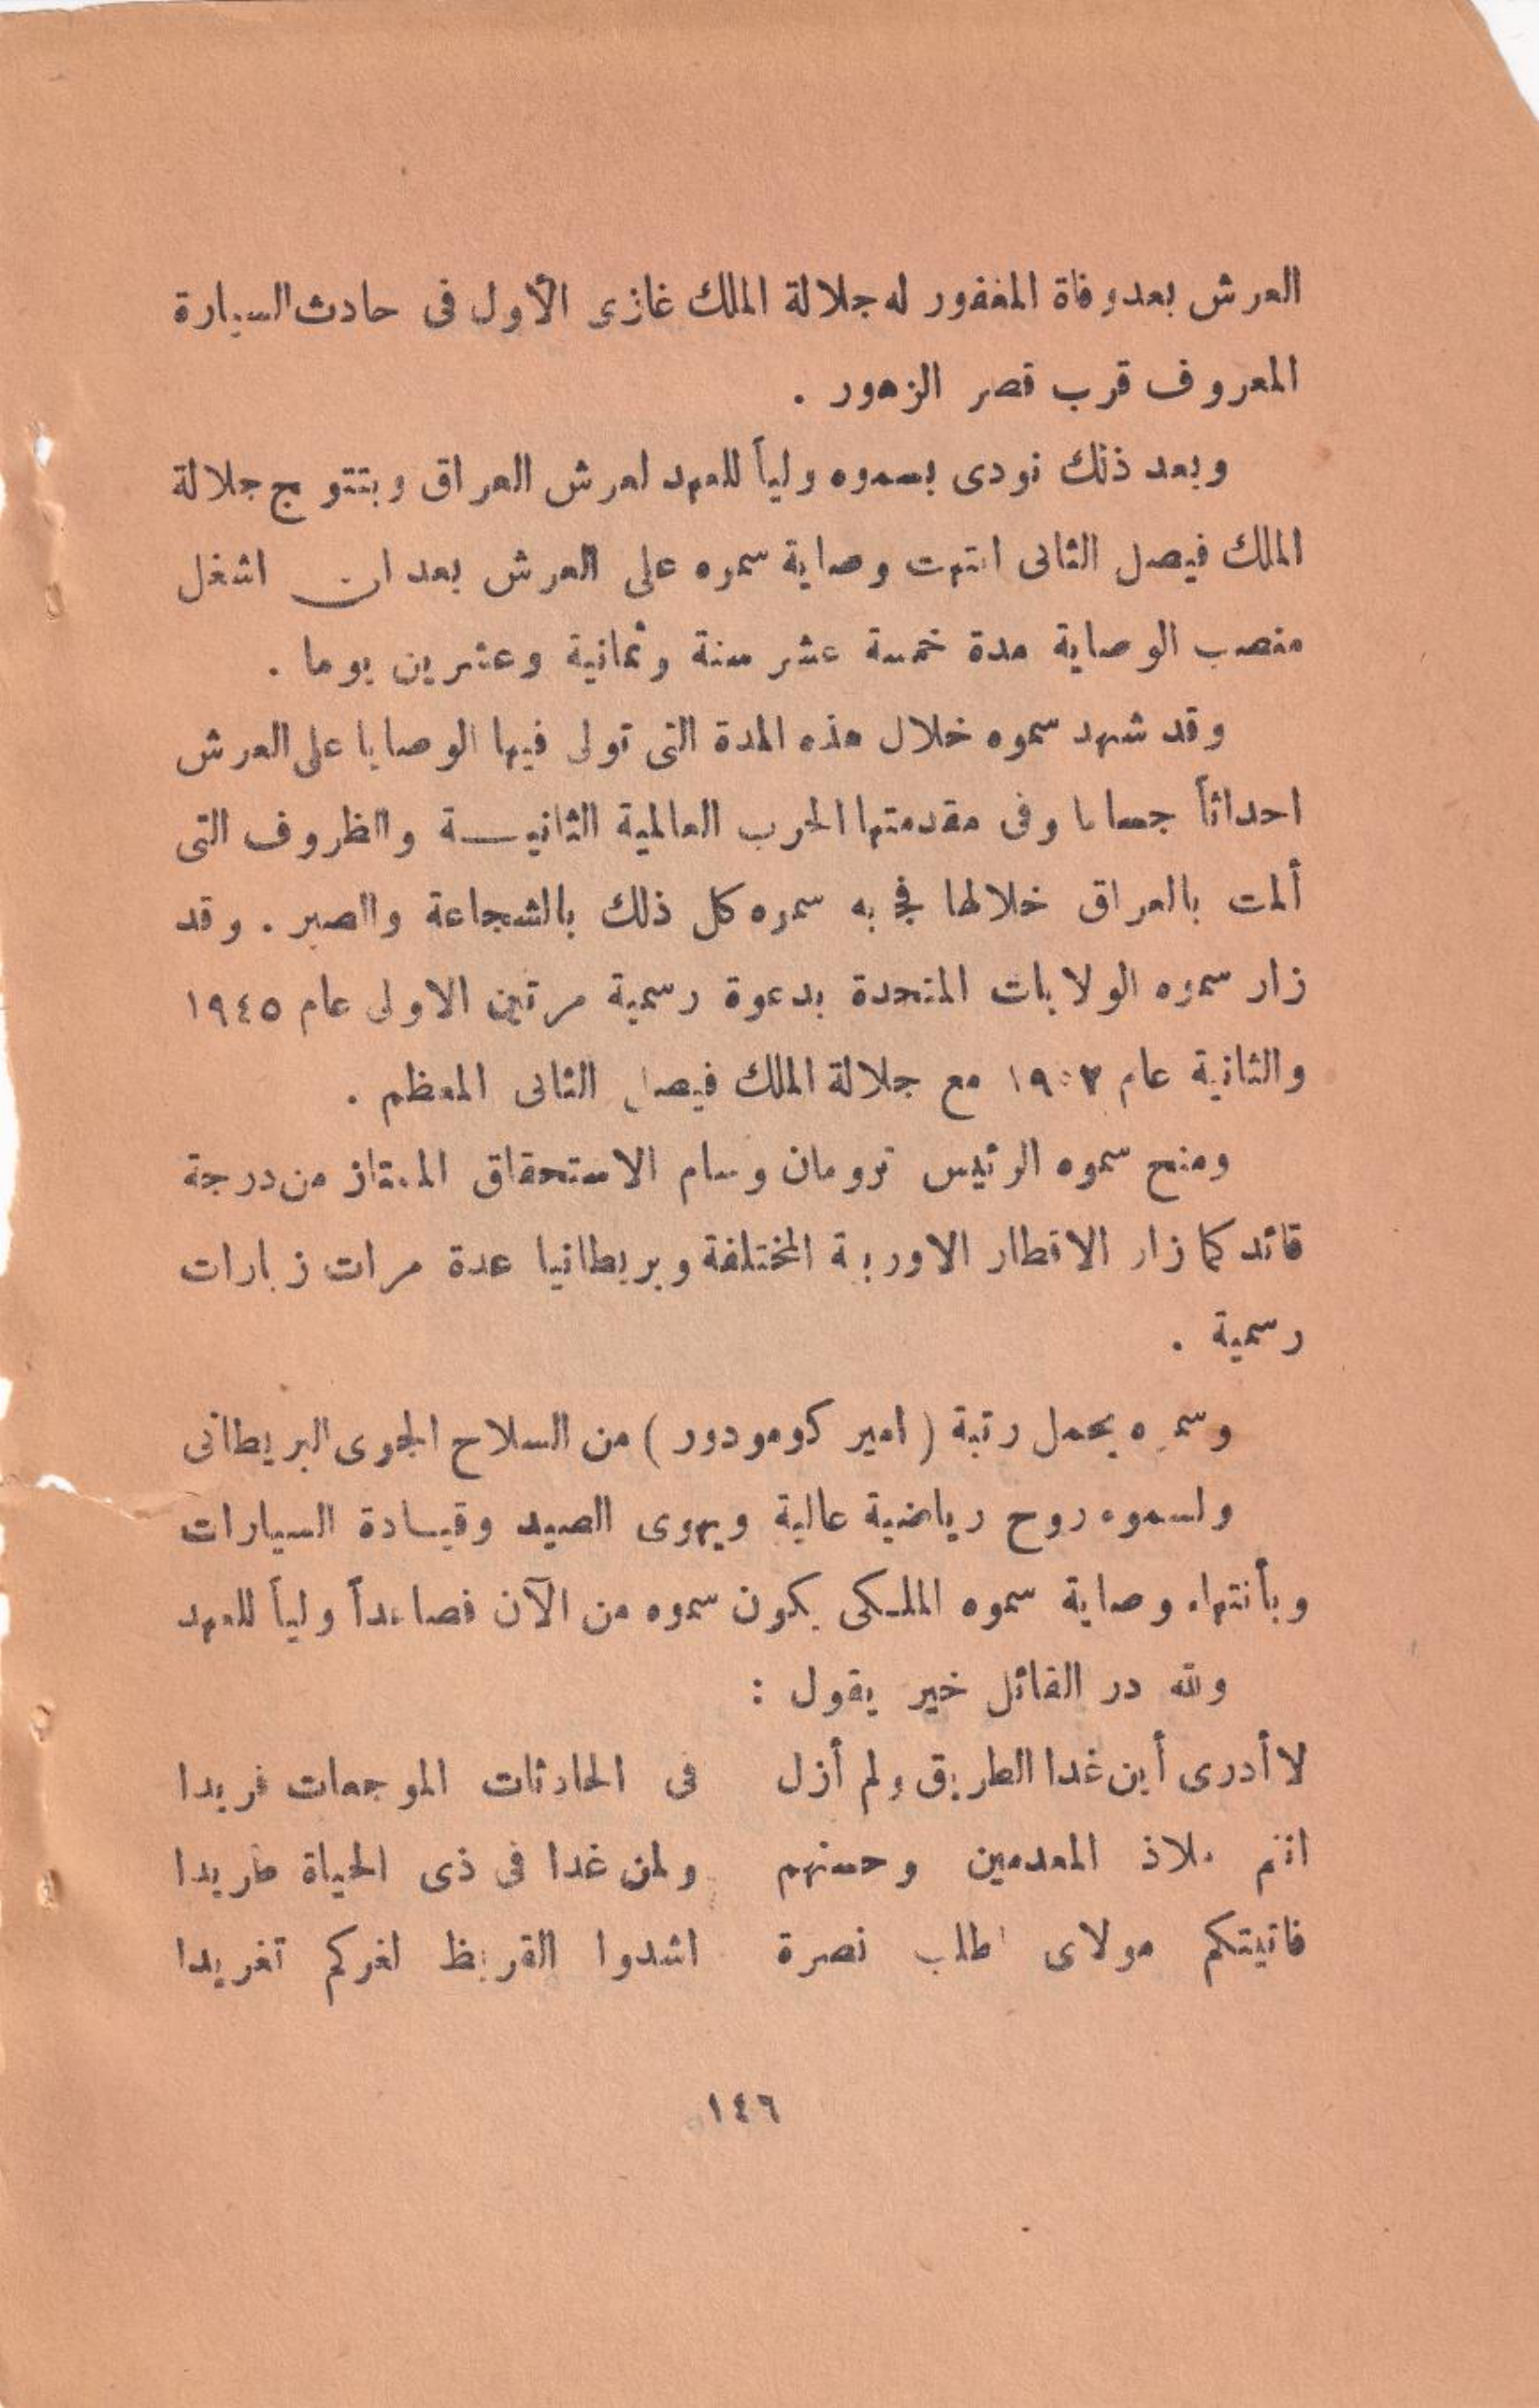 العرش بعد وفاة المغفور له جلالة الملك غازى الأول فى حادث السيارة
المعروف قرب قصر الزهور .
وبعد ذلك نودى بسموه ولياً للعهد لعرش العراق وبتتويج جلالة
الملك فيصل الثانى انتهت وصاية سموه على العرش بعد ان اشغل
منصب الوصاية مدة خمسة عشر سنة وثمانية وعشرين يوما .
وقد شهد سموه خلال هذه المدة التى تولى فيها الوصايا على العرش
احداثاً جساما وفى مقدمتها الحرب العالمية الثانيـة والظروف التى
ألمت بالعراق خلالها به سموه كل ذلك بالشجاعة والصبر . وقد
زار سموه الولايات المتحدة بدعوة رسمية مرتين الاولى عام ١٩٤٥
والثانية عام مع جلالة الملك فيصل الثانى المعظم .
ومنح سموه الرئيس ترومان وسام الاستحقاق الممتاز من درجة
قائد كما زار الاقطار الاوربية المختلفة وبريطانيا عدة مرات زيارات
رسمية .
وسموه يحمل رتبة ( امير كومودور ) من السلاح الجوى البريطانى
ولسموه روح رياضية عالية ويهوى الصيد وقيـادة السيارات
وبأنتهاء وصاية سموه الملـكى يكون سموه من الآن فصاعداً ولياً للعهد
ولله در القائل خير يقول :
لا أدرى أين غدا الطريق ولم أزل فى الحادثات الموجعات فريدا
انتم ملاذ المعدمين وحصنهم ولمن غدا فى ذى الحياة طريدا
فاتيتكم مولاى اطلب نصرة اشدوا القريظ لغركم تغريدا
١٤٦